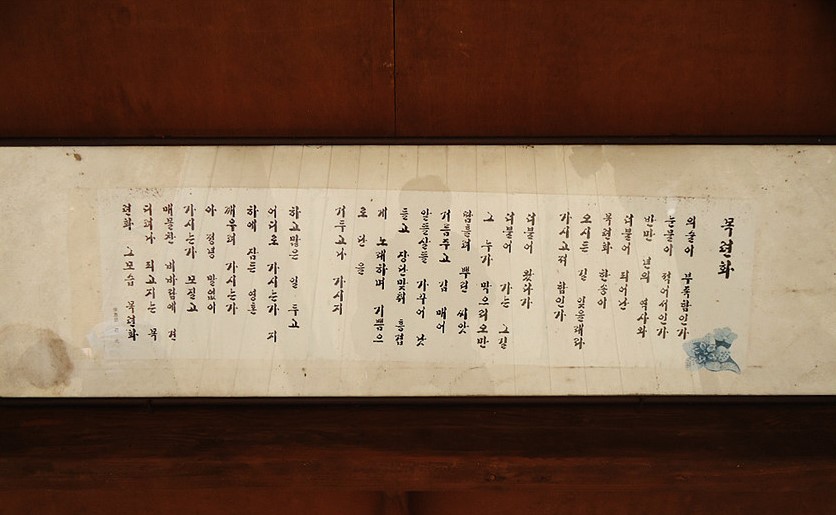 목련화
의술이 부족함인가
눈물이 적어서인가
반만 년의 역사와
더불어 피어난
목련화 한송이
오시는 길 잊을래라
가시고저 함인가
더불어 왔다가
더불어 가는 그길
그 누가 막으리오만
땀흘려 뿌린 씨앗
거름주고 김 매어
알뜰살뜰 가꾸어 낫
들고 장단맞춰 흥겹
게 노래하며 기쁨으
로 단 을
거두고나 가시지
하고많은 일 두고
어디로 가시는가 지
하에 잠든 영혼
깨우려 가시는가
아 정녕 말없이
가시는가 모질고
매몰찬 비바람에 견
디려나 피고지는 목
련화 그모습 목련화